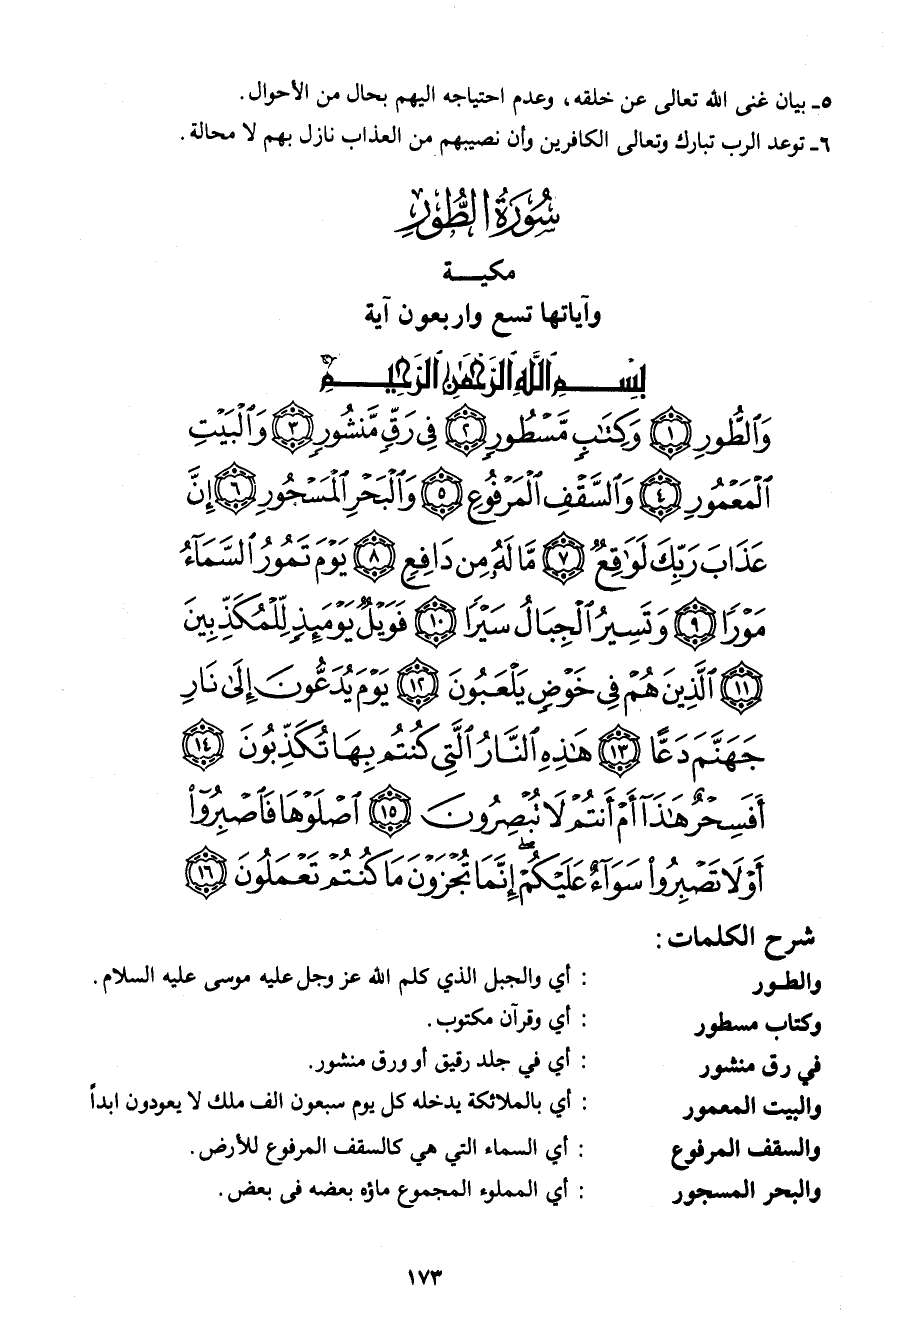 ٥ـ بيان غنى الله تعالى عن خلقه، وعدم احتياجه اليهم بحال من الأحوال.
٦ـ توعد الرب تبارك وتعالى الكافرين وأن نصيبهم من العذاب نازل بهم لا محالة.
سُورَةُ الطُّورِ
مكيـــة
وآياتها تسع واربعون آية
بِسْمِ ٱللَّهِ ٱلرَّحْمَٰنِ ٱلرَّحِيمِ
وَٱلطُّورِ ١ وَكِتَٰبٍ مَّسْطُورٍ ٢ فِى رَقٍّ مَّنشُورٍ ٣ وَٱلْبَيْتِ
ٱلْمَعْمُورِ ٤ وَٱلسَّقْفِ ٱلْمَرْفُوعِ ٥ وَٱلْبَحْرِ ٱلْمَسْجُورِ ٦ إِنَّ
عَذَابَ رَبِّكَ لَوَٰقِعٌ ٧ مَّا لَهُۥ مِن دَافِعٍ ٨ يَوْمَ تَمُورُ ٱلسَّمَآءُ
مَوْرًا ٩ وَتَسِيرُ ٱلْجِبَالُ سَيْرًا ١٠ فَوَيْلٌ يَوْمَئِذٍ لِّلْمُكَذِّبِينَ
١١ ٱلَّذِينَ هُمْ فِى خَوْضٍ يَلْعَبُونَ ١٢ يَوْمَ يُدَعُّونَ إِلَىٰ نَارِ
جَهَنَّمَ دَعًّا ١٣ هَٰذِهِ ٱلنَّارُ ٱلَّتِى كُنتُم بِهَا تُكَذِّبُونَ ١٤
أَفَسِحْرٌ هَٰذَآ أَمْ أَنتُمْ لَا تُبْصِرُونَ ١٥ ٱصْلَوْهَا فَٱصْبِرُوٓا۟
أَوْ لَا تَصْبِرُوا۟ سَوَآءٌ عَلَيْكُمْ ۖ إِنَّمَا تُجْزَوْنَ مَا كُنتُمْ تَعْمَلُونَ ١٦
شرح الكلمات :
والطـور : أي والجبل الذي كلم الله عز وجل عليه موسى عليه السلام.
وكتاب مسطور : أي وقرآن مكتوب.
في رق منشور : أي في جلد رقيق أو ورق منشور.
والبيت المعمور : أي بالملائكة يدخله كل يوم سبعون الف ملك لا يعودون ابداً
والسقف المرفوع : أي السماء التي هي كالسقف المرفوع للأرض.
والبحر المسجور : أي المملوء المجموع ماؤه بعضه فى بعض.
١٧٣